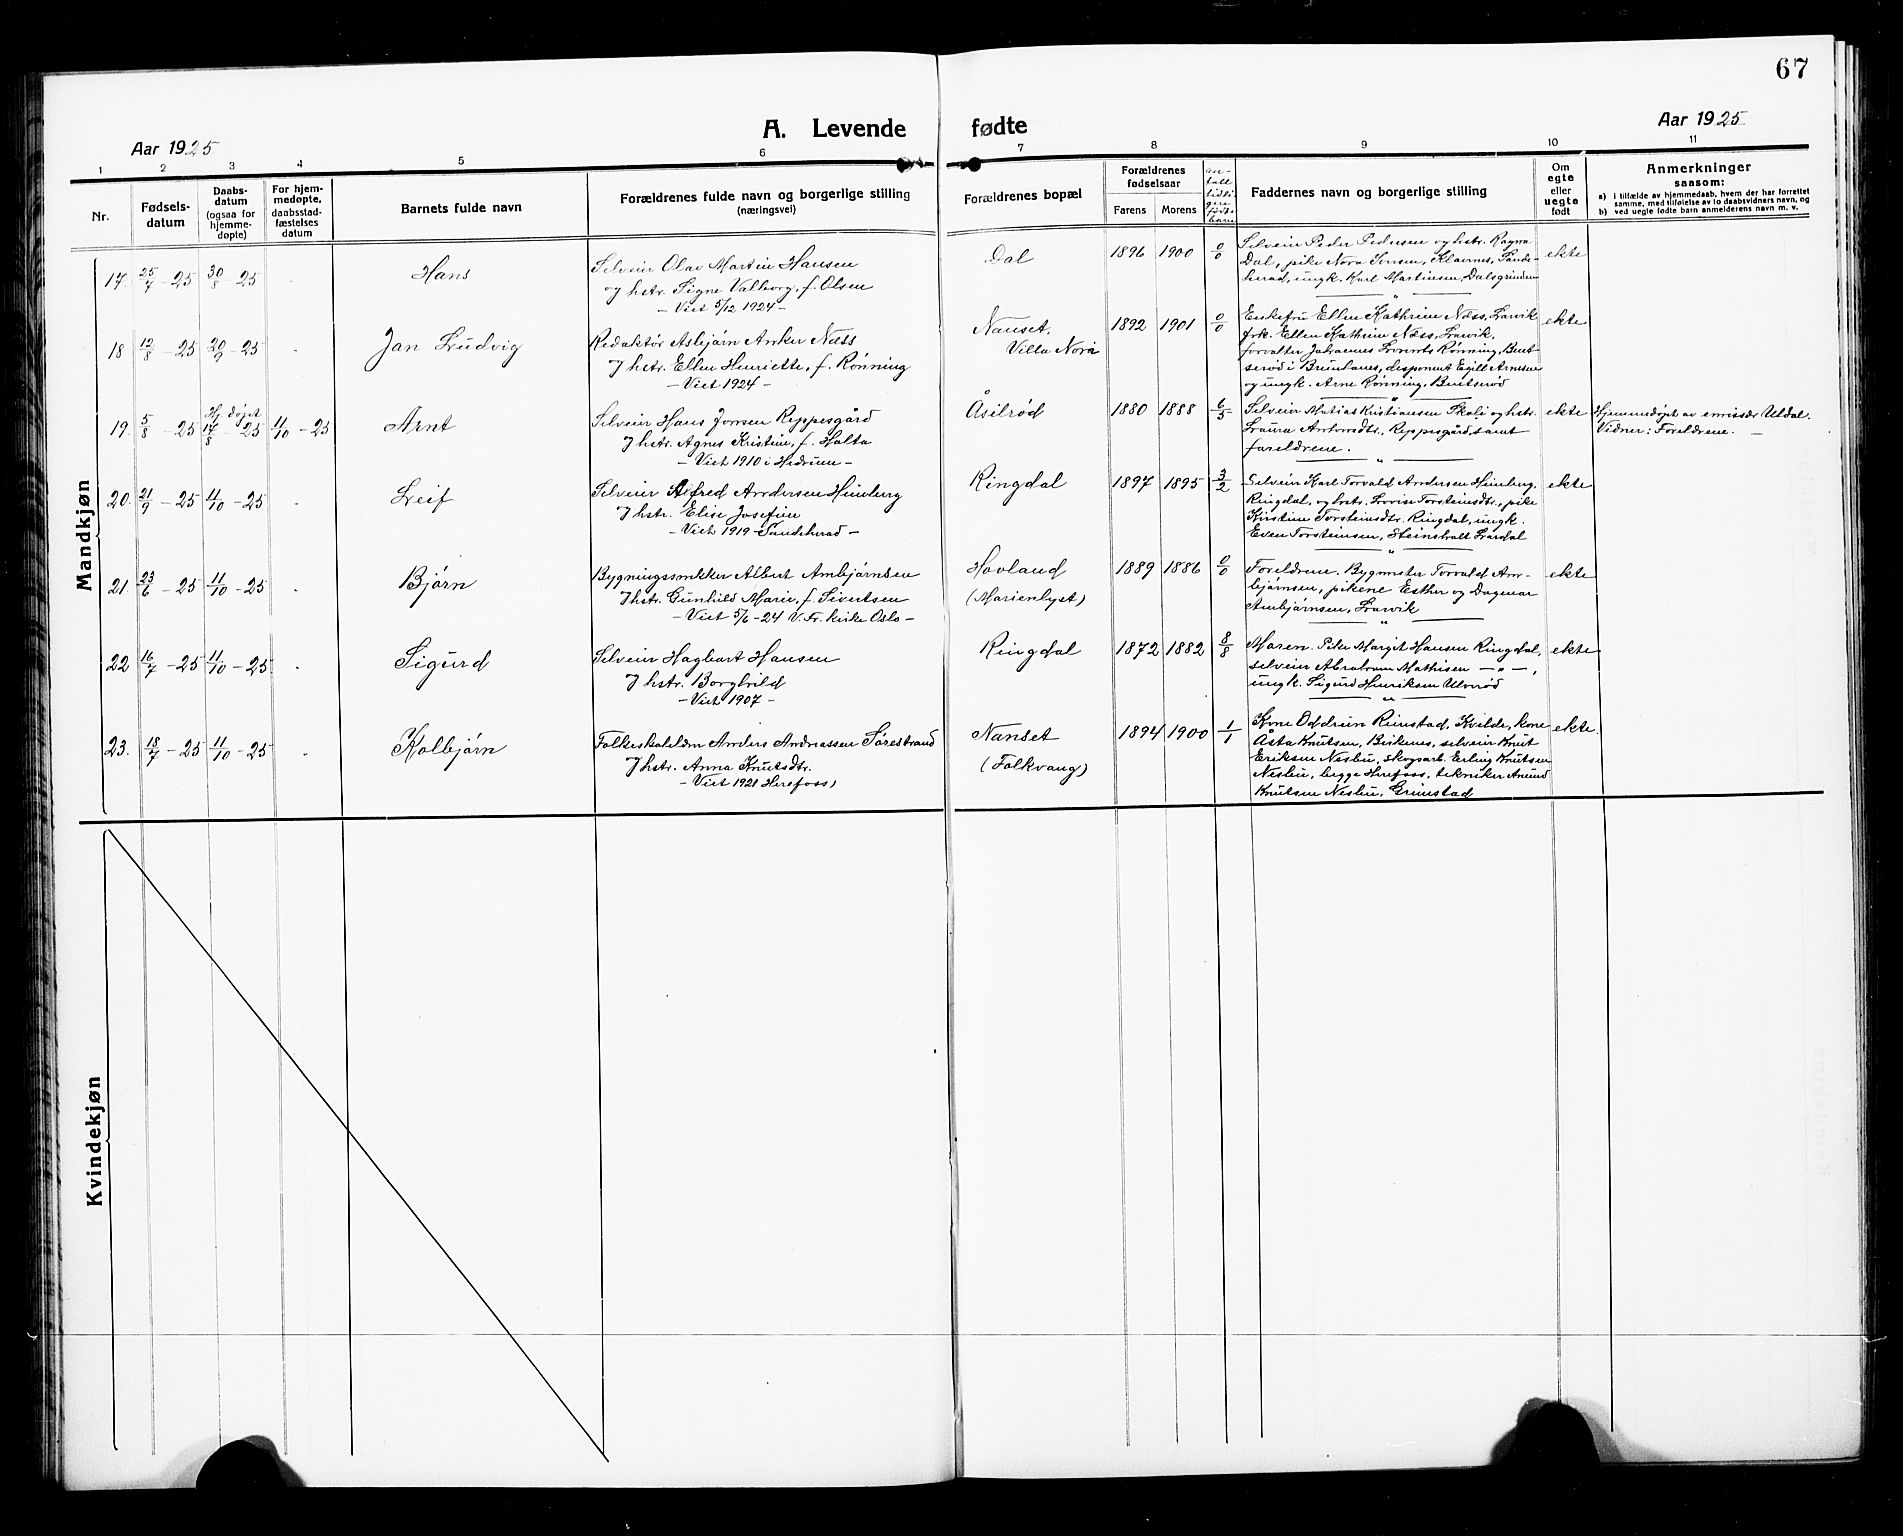 67
A. Levende fødte
Aar 1925
Aar 1925
1 2 3 4 5 6 7 8 9 10 11
Nr.
Fødsels-
datum
Daabs-
datum
(ogsaa for
hjemme-
døpte)
For hjem-
medøpte,
daabsstad-
fæstelses
datum
Barnets fulde navn
Forældrenes fulde navn og borgerlige stilling
(næringsvei)
Forældrenes bopæl
Forældrenes
fødselsaar
Farens Morens
Faddernes navn og borgerlige stilling
Om
egte
eller
uegte
født
Anmerkninger
saasom:
a) i tilfælde av hjemmedaab, hvem der har forrettet
samme, med tilføielse av to daabsvidners navn, og
b) ved uegte fødte barn anmelderens navn m. v.
Mandkjøn
17. 25/7 - 25 30/8 - 25 Hans
Selveier Olav Martin Hansen
og hstr. Signe Valborg, f. Olsen
- Viet 5/12 1924 -
Dal 1896 1900 0/0
Selveier Peder Pedersen og hstr. Ragna
Dal, pike Nora Jensen, Klavnes, Sande-
herad, ungk. Karl Martinsen, Dalsgrinden
ekte
18 12/8 - 25 20/9 - 25 Jan Ludvig
Redaktør Asbjørn Anker Næss
og hstr. Ellen Henriette, f. Rønning
- Viet 1924 -
Nanset.
Villa Nora
1892 1901 0/0
Enkefru Ellen Kathrine Næss, Larvik
frk. Ellen Kathrine Næss, Larvik,
forvalter Johannes Lorents Rønning, Bent-
serød i Brunlanes, disponent Egill Arnesen
og ungk. Arne Rønning, Bentserød
ekte
19. 5/8 - 25 Hj. døpt 17/8 - 25 11/10 - 25 Arnt
Selveier Hans Jonsen Ryppesgård
og hstr. Agnes Kristine, f. Holta
- Viet 1910 i Hedrum -
Åsilrød 1880 1888 6/5
Selveier Matias Kristiansen Skoli og hstr.
Laura Antonsdtr., Ryppesgård, samt
foreldrene.
ekte
Hjemmedøpt av emissær Uldal.
Vidner: Foreldrene. -
20. 21/9 - 25 11/10 - 25 Leif
Selveier Alfred Andersen Himberg
og hstr. Elise Josefine
- Viet 1919 Sandeherad -
Ringdal 1897 1895 3/2
Selveier Karl Torvald Andersen Himberg,
Ringdal, og hstr. Lovise Torsteinsdtr., pike
Kirstine Torsteinsdtr. Ringdal, ungk.
Even Torsteinsen, Steinsholt Lardal
ekte
21. 23/6 - 25 11/10 - 25 Bjørn
Bygningssnekker Albert Ambjørnsen
og hstr. Gunhild Marie, f. Sivertsen
- Viet 5/6 - 24 V. Fr. kirke Oslo -
Hovland
(Marienlyst)
1889 1886 0/0
Foreldrene. Bygmester Torvald Am-
bjørnsen, pikene Esther og Dagmar
Ambjørnsen, Larvik
ekte
22 16/7 - 25 11/10 - 25 Sigurd
Selveier Hagbart Hansen
og hstr. Borghild
- Viet 1907 -
Ringdal 1872 1882 8/8
Moren. Pike Margit Hansen Ringdal,
selveier Abraham Mathisen - " -,
ungk. Sigurd Henriksen Ulverød
ekte
23. 18/7 - 25 11/10 - 25 Kolbjørn
Folkeskolelærer Anders Andreassen Sørestrand
og hstr. Anna Knutsdtr.
- Viet 1921 Herefoss)
Nanset
(Folkvang)
1894 1900 1/1
Kone Oddrun Rimstad, Kvilde, kone
Åsta Knutsen, Birkenes, selveier Knut
Eriksen Neslu, skogarb. Erling Knutsen
Neslu, begge Herefoss, tekniker Anund
Knutsen Neslu, Grimstad
ekte.
Kvindekjøn